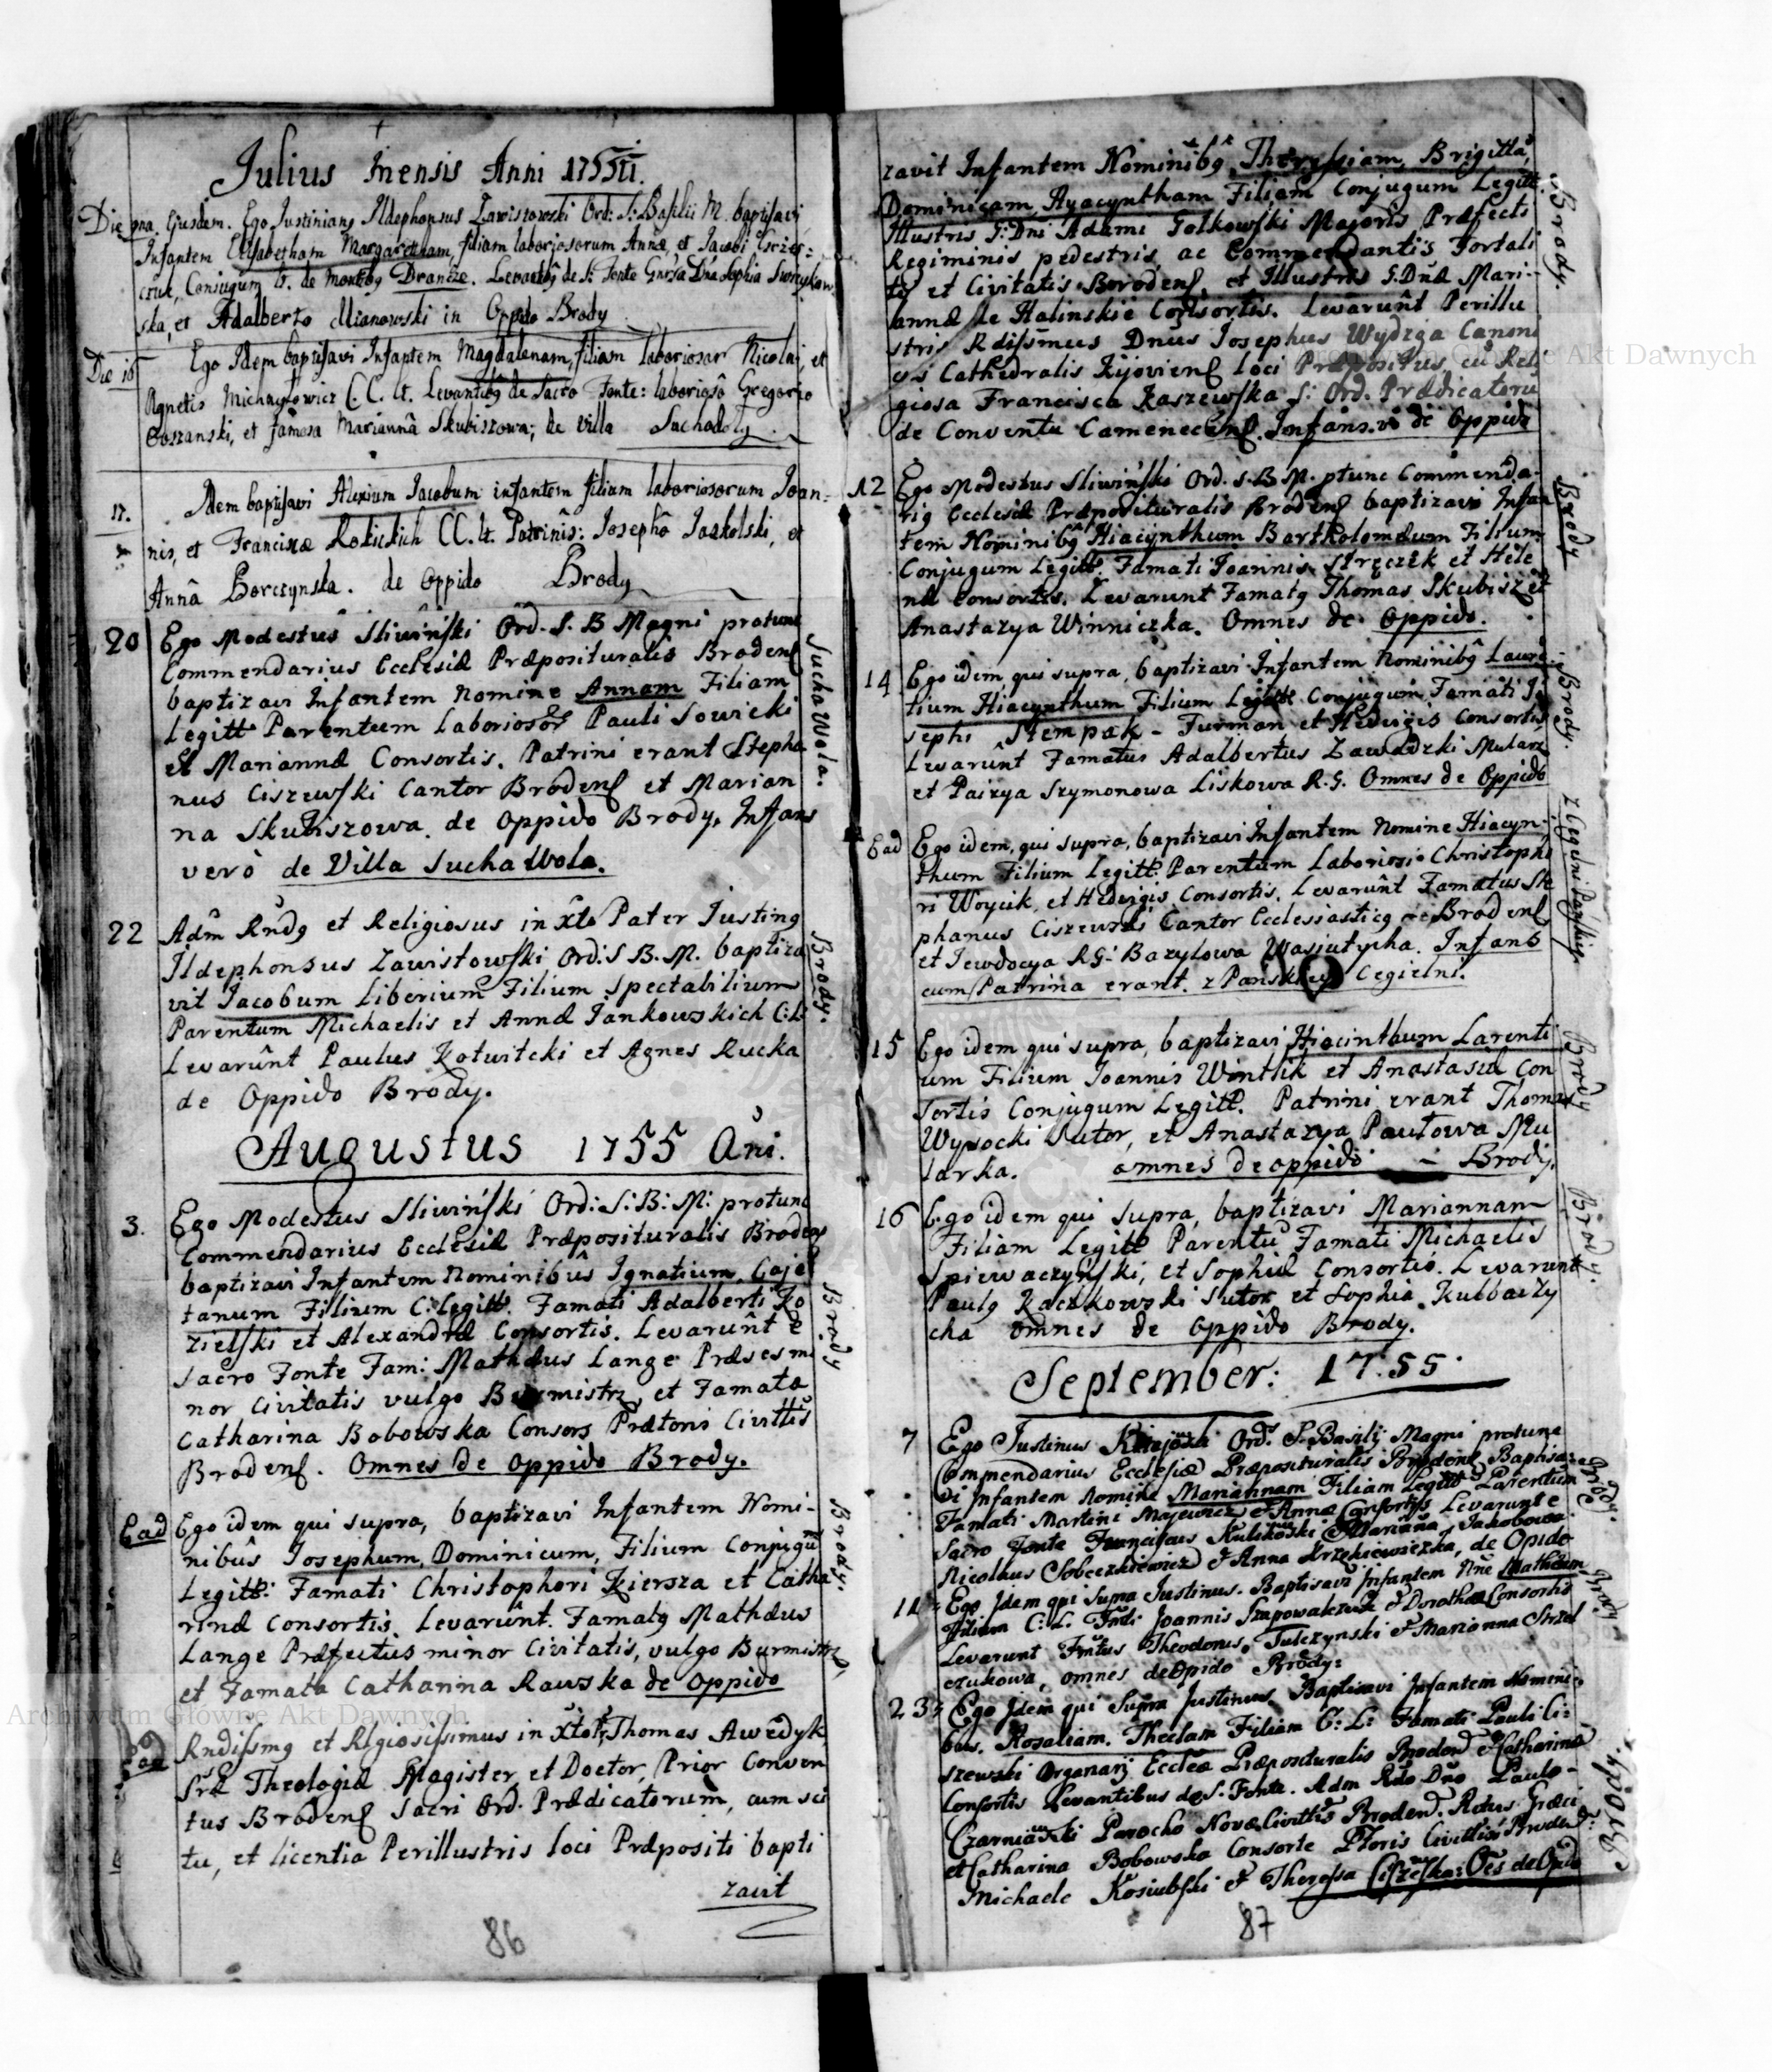 Julius mensis Anni 1755ti.
Die ona. Ejusdem. Ego Justinian9 Ildephonsus Zawistowski Ord: S: Basilii M. baptisavi
Infantem Elisabetham Margaretham, filiam laboriosorum Annæ, et Jacobi
Conjugum lt. de Dranize. Levantib9 de S: Fonte Dna Sophia
ska, et Adalberto Mianowski in Oppido Brody
Die 16 Ego Idem baptisavi Infantem Magdalenam, filiam laboriosor Nicolai, et
Agnetis Michayłowicz C.C. lt. Levantib9 de Sacro Fonte: laboriosô Gregorio
et famosa Mariannâ Skubiszowa; de Villa Suchodoły.
17. Idem baptisavi Alexium Jacobum infantem filium laboriosorum Joan-
nis, et Franciscæ Rokickich CC. lt. Patrinis: Josephô Jaskolski, et
Annâ Borczynska. de Oppido Brody
20 Ego Modestus Sliwiński Ord. S. B Magni protunc
Commendarius Ecclesiæ Præposituralis Brodens
baptizavi Infantem nomine Annam Filiam
Legitt Parentum Laboriosor Pauli Sowicki
et Mariannæ Consortis. Patrini erant Stepha
nus Ciszewski Cantor Brodens et Marian
na Skubiszowa. de Oppido Brody, Infans
verò de Villa Sucha Wola.
Sucha Wola.
22 Adm Rnd9 et Religiosus in Xto Pater Justin9
Ildephonsus Zawistowski Ord: S B. M. baptiza
vit Jacobum Liberium Filium Spectabilium
Parentum Michaelis et Annæ Jankowskich C: L:
Levarûnt Paulus Kotwitcki et Agnes Rucka
de Oppido Brody.
Brody.
Augustus 1755 Ani.
3. Ego Modestus Sliwiński Ord: S: B: M: protunc
Commendarius Ecclesiæ Præposituralis Brodens
baptizavi Infantem Nominibûs Ignatium, Caje
tanum Filium C: Legitt. Famati Adalberti Ko
zielski et Alexandræ Consortis. Levarûnt e
Sacro Fonte Fam: Mathæus Lange Præses mi
nor Civitatis vulgo Burmistrz, et Famata
Catharina Bobowska Consors Prætoris Civittis
Brodens. Omnes de Oppido Brody.
Brody
Ead Ego idem qui supra, baptizavi Infantem Nomi-
nibûs Josephum, Dominicum, Filium Conjugû
Legitt: Famati Christophori Kiersza et Catha
rinæ Consortis. Levarûnt. Famat9 Mathæus
Lange Præfectus minor Civitatis, vulgo Burmistrz,
et Famata Catharina Rawska de Oppido
Brody.
Ead Rndissm9 et Rlgiosissimus in Xto Thomas Awedyk
Sræ Theologiæ Magister et Doctor, Prior Conven
tus Brodens Sacri Ord. Prædicatorum, cum sci
tu, et licentia Perillustris loci Præpositi bapti
zavit
86
zavit Infantem Nominib9 Theressiam, Brigittã,
Dominicam, Hyacyntham Filiam Conjugum Legitt.
Illustris S: Dni Adami Golkowski Majoris Præfecti
Regiminis pedestris ac Commendantis Fortali
tij et Civitatis Brodens, et Illustris S. Dnæ Mari-
annæ de Halinskie Consortis. Levarûnt Perillu
stris Rdissmus Dnus Josephus Wydzga Canoni
cus Cathedralis Kijoviens loci Præpositus, cû Reli
giosa Francisca Kaszewska S: Ord. Prædicatoru
de Conventu Camenecens. Infans. vò de Oppido
Brody.
12 Ego Modestus Sliwiński Ord. S. B. M. ptunc Commenda-
ri9 Ecclesiæ Præposituralis Brodens baptizavi Infan
tem Nominib9 Hiacynthum Bartholomæum Filium
Conjugum Legitt. Famati Joannis Stręczek et Hele
næ Consortis. Levarunt Famat9 Thomas Skubisz et
Anastazya Winniczka. Omnes de Oppido.
Brody
14 Ego idem qui supra, baptizavi Infantem Nominib9 Laure-
tium Hiacynthum Filium Legitt. Conjugum Famati Jo
sephi Stempak - Furman et Hedvigis Consortis,
Levarûnt Famatus Adalbertus Zawadzki Mularz
et Paizya Szymonowa Liskowa R. G. Omnes de Oppido
Brody.
Ead Ego idem, qui supra, baptizavi Infantem Nomine Hiacyn-
thum Filium Legitt. Parentum Laboriosi Christopho
ri Woycik, et Hedvigis Consortis. Levarûnt Famatus Ste
phanus Ciszewski Cantor Ecclesiastic9 Brodens
et Jewdocya RG. Bazylowa Wasiutycha. Infans
cum Patrina erant. z Panskiey Cegielni.
z Cegielni Panskiey.
15 Ego idem qui supra, baptizavi Hiacinthum Larenti
um Filium Joannis Wintlik et Anastasiæ Con
sortis Conjugum Legitt. Patrini erant Thomas
Wysocki Sutor, et Anastazya Pawłowa Mu
larka. omnes de oppido - Brody.
Brody
16 Ego idem qui supra, baptizavi Mariannam
Filiam Legitt Parentũ Famati Michaelis
Spiewaczyński, et Sophiæ Consortis. Levarunt
Paul9 Kaczkowski Sutor et Sophia Kubbaczy
cha omnes de Oppido Brody.
Brody.
September: 1755.
7 Ego Justinus Ord. S. Basilij Magni protunc
Commendarius Ecclesiæ Præposituralis Brodens Baptisa=
vi Infantem Nomine Mariannam Filiam Legitt Parentum
Famati Martini Majewicz et Annæ Consortis Levarunt e
Sacro Fonte Franciscus Kulikowski et Marianna Jakobowa
Nicolaus Sobeczkiewicz et Anna Krzykiewiczka, de Opido
Brody.
Ego Idem qui Supra Justinus. Baptisavi Infantem Nñe Mathæum
Filium C: L. Fmti Joannis Szapowalczuk et Dorotheæ Consortis
Levarunt Fmtus Theodorus Tulczynski et Marianna Strzel
czukowa, omnes de Opido Brody:
Brody
23 Ego Idem qui Supra Justinus Baptisavi Infantem Nomini=
bus. Rosaliam. Theclam Filiam C: L: Famati Pauli Li=
szewski Organarij Ecclæ Præposituralis Brodens et Catharinæ
Consortis Levantibus de S. Fonte. Adm Rdo Dño Paulo
Czarnianski Parocho Novæ Civittis Brodens. Ritus Græci
et Catharina Bobowska Consorte Ptoris Civittis Brodens:
Michaele Kosiubski et Theressa Ciszewska: Oes de Opido
Brody.
87
Archiwum Główne Akt Dawnych